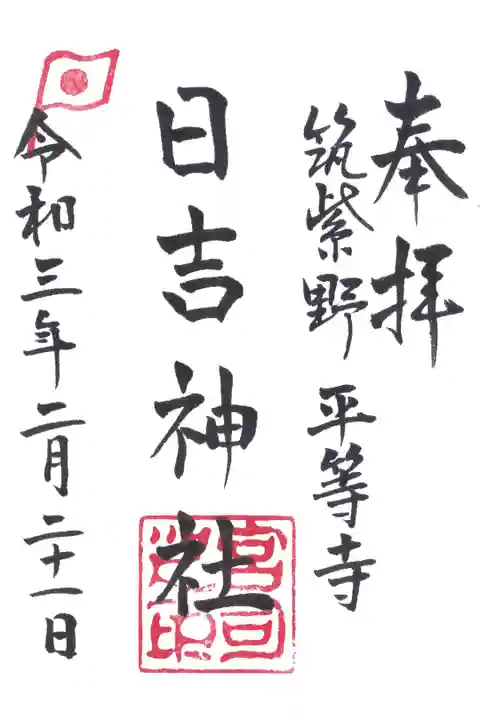 奉拝
筑紫野 平等寺
日吉神社
宮司之印
令和三年二月二十一日